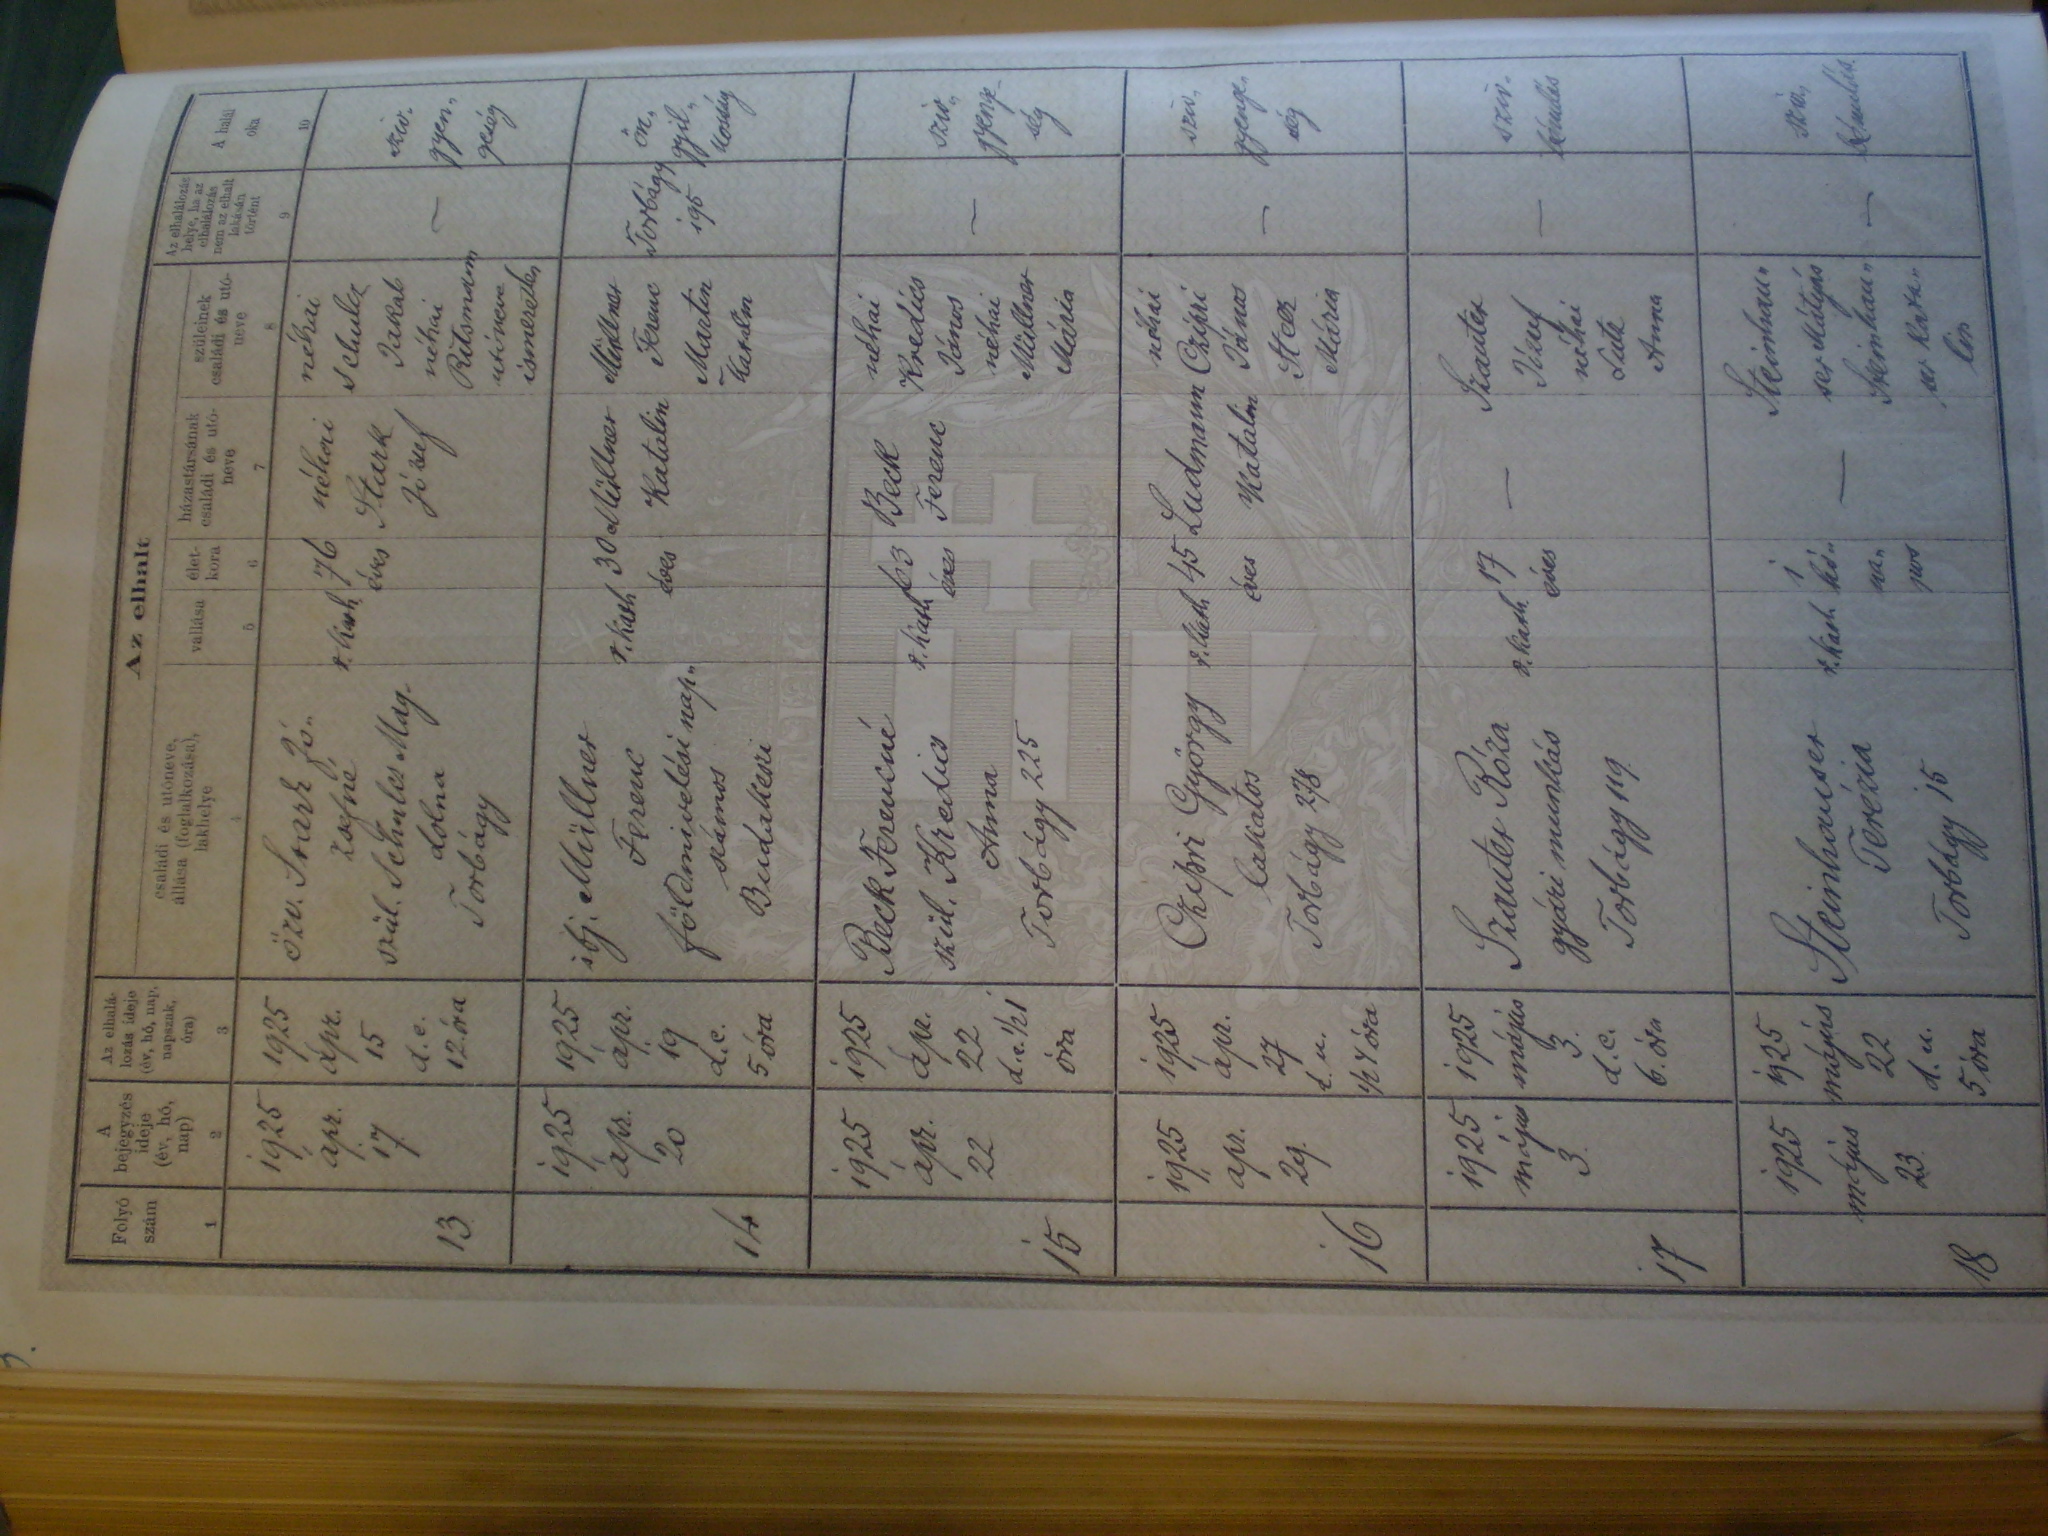 Az elhalt
Folyó
szám
A
bejegyzés
ideje
(év, hó,
nap)
Az elhalá-
lozás ideje
(év, hó, nap,
napszak,
óra)
családi és utóneve,
állása (foglalkozása),
lakhelye
vallása
élet-
kora
házastársának
családi és utó-
neve
szüleinek
családi és utó-
neve
Az elhalálozás
helye, ha az
elhalálozás
nem az elhalt
lakásán
történt
A halál
oka
1
2
3
4
5
6
7
8
9
10
13
1925
ápr.
17
1925
ápr.
15
d.e.
12 óra
özv. Stark Jó„
zsefné
szül. Schulcz Mag„
dolna
Torbágy
r. kath
76
éves
néhai
Stark
József
néhai
Schulcz
Jakab
néhai
Ritsmann
utóneve
ismeretlen
—
sziv„
gyen„
geség
14
1925
ápr.
20
1925
ápr.
19
d.e.
5 óra
ifj. Müllner
Ferenc
földmivelési nap„
számos
Budakeszi
r. kath
30
éves
Müllner
Katalin
Müllner
Ferenc
Martin
Katalin
Torbágy
195
ön„
gyil„
kosság
15
1925
ápr.
22
1925
ápr.
22
d.e. 1/21
óra
Beck Ferencné
szül. Kredics
Anna
Torbágy 225
r. kath
63
éves
Beck
Ferenc
néhai
Kredics
János
néhai
Müllner
Mária
—
sziv„
gyenge„
ség
16
1925
ápr.
29
1925
ápr.
27
d.u.
1/2 4 óra
Czipri György
lakatos
Torbágy 278
r. kath
45
éves
Ludmann
Katalin
néhai
Czipri
János
Steer
Mária
—
sziv„
gyenge„
ség
17
1925
május
3.
1925
május
3.
d.e.
6. óra
Szauter Róza
gyári munkás
Torbágy 119
r. kath
17
éves
—
Szauter
József
néhai
Lutz
Anna
—
sziv„
bénulás
18
1925
május
23.
1925
május
22
d.u.
5 óra
Steinhauser
Terézia
Torbágy 15
r. kath
1
hó„
na„
pos
—
Steinhau„
ser Mátyás
Steinhau„
ser Kata„
lin
—
sziv„
bénulás